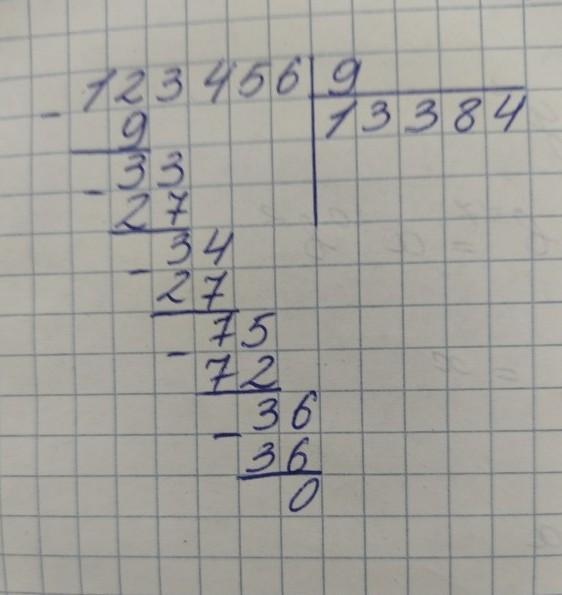 123456 9
- 9 13384
33
- 27
34
- 27
75
- 72
36
- 36
0